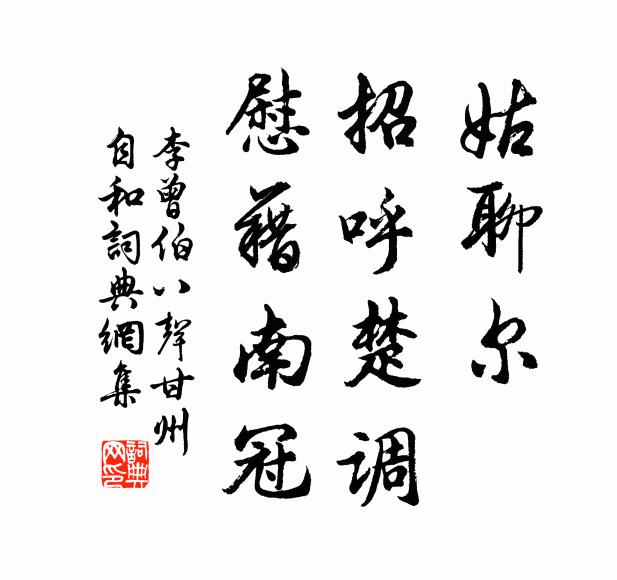 姑聊尔
招呼楚调
慰藉南冠
李曾伯八声甘州
自和詞典網集
詞典
网印